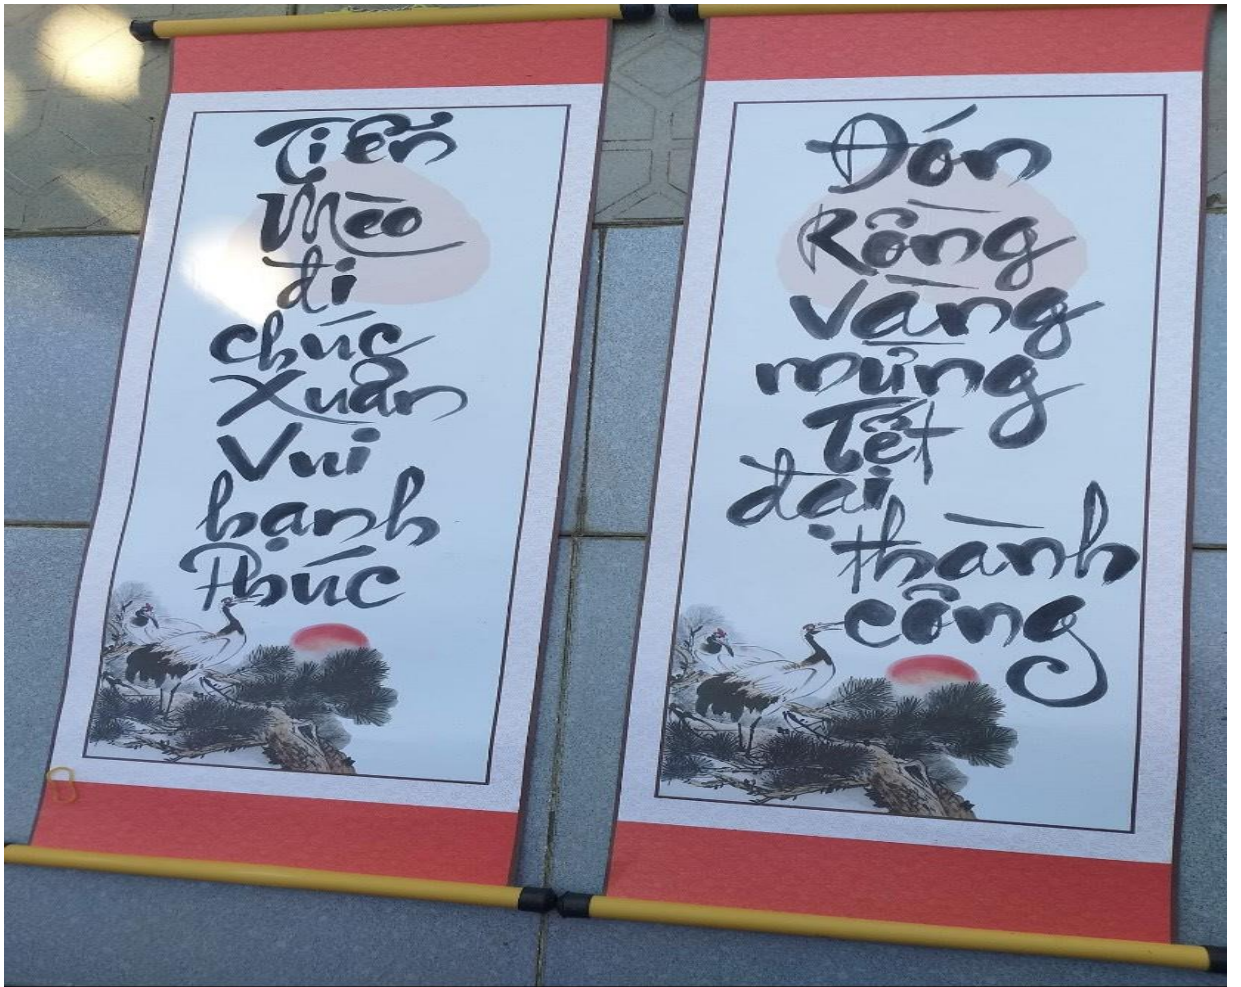 Tiễn
Mèo
đi
chúc
Xuân
Vui
hạnh
Phúc
Đón
Rồng
Vàng
mừng
Tết
đại
thành
công